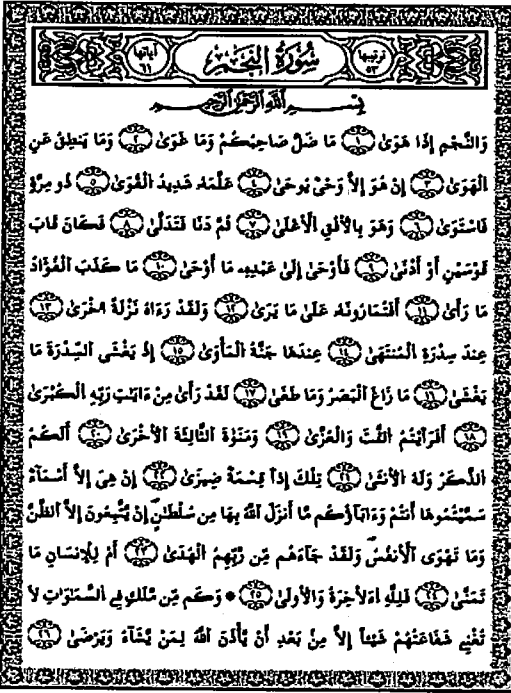 ترتيبها ٥٣ سُورَةُ النَّجْمِ آياتها ٦٢
بِسْمِ اللَّهِ الرَّحْمَٰنِ الرَّحِيمِ
وَالنَّجْمِ إِذَا هَوَىٰ ١ مَا ضَلَّ صَاحِبُكُمْ وَمَا غَوَىٰ ٢ وَمَا يَنطِقُ عَنِ
الْهَوَىٰ ٣ إِنْ هُوَ إِلَّا وَحْيٌ يُوحَىٰ ٤ عَلَّمَهُ شَدِيدُ الْقُوَىٰ ٥ ذُو مِرَّةٍ
فَاسْتَوَىٰ ٦ وَهُوَ بِالْأُفُقِ الْأَعْلَىٰ ٧ ثُمَّ دَنَا فَتَدَلَّىٰ ٨ فَكَانَ قَابَ
قَوْسَيْنِ أَوْ أَدْنَىٰ ٩ فَأَوْحَىٰ إِلَىٰ عَبْدِهِ مَا أَوْحَىٰ ١٠ مَا كَذَبَ الْفُؤَادُ
مَا رَأَىٰ ١١ أَفَتُمَارُونَهُ عَلَىٰ مَا يَرَىٰ ١٢ وَلَقَدْ رَءَاهُ نَزْلَةً أُخْرَىٰ ١٣
عِندَ سِدْرَةِ الْمُنتَهَىٰ ١٤ عِندَهَا جَنَّةُ الْمَأْوَىٰ ١٥ إِذْ يَغْشَى السِّدْرَةَ مَا
يَغْشَىٰ ١٦ مَا زَاغَ الْبَصَرُ وَمَا طَغَىٰ ١٧ لَقَدْ رَأَىٰ مِنْ ءَايَٰتِ رَبِّهِ الْكُبْرَىٰ
١٨ أَفَرَأَيْتُمُ اللَّٰتَ وَالْعُزَّىٰ ١٩ وَمَنَوٰةَ الثَّالِثَةَ الْأُخْرَىٰ ٢٠ أَلَكُمُ
الذَّكَرُ وَلَهُ الْأُنثَىٰ ٢١ تِلْكَ إِذًا قِسْمَةٌ ضِيزَىٰ ٢٢ إِنْ هِيَ إِلَّا أَسْمَآءٌ
سَمَّيْتُمُوهَا أَنتُمْ وَءَابَآؤُكُم مَّا أَنزَلَ اللَّهُ بِهَا مِن سُلْطَٰنٍ إِن يَتَّبِعُونَ إِلَّا الظَّنَّ
وَمَا تَهْوَى الْأَنفُسُ وَلَقَدْ جَآءَهُم مِّن رَّبِّهِمُ الْهُدَىٰ ٢٣ أَمْ لِلْإِنسَانِ مَا
تَمَنَّىٰ ٢٤ فَلِلَّهِ الْآخِرَةُ وَالْأُولَىٰ ٢٥ * وَكَم مِّن مَّلَكٍ فِي السَّمَٰوَاتِ لَا
تُغْنِي شَفَاعَتُهُمْ شَيْئًا إِلَّا مِنْ بَعْدِ أَنْ يَأْذَنَ اللَّهُ لِمَنْ يَشَآءُ وَيَرْضَىٰ ٢٦